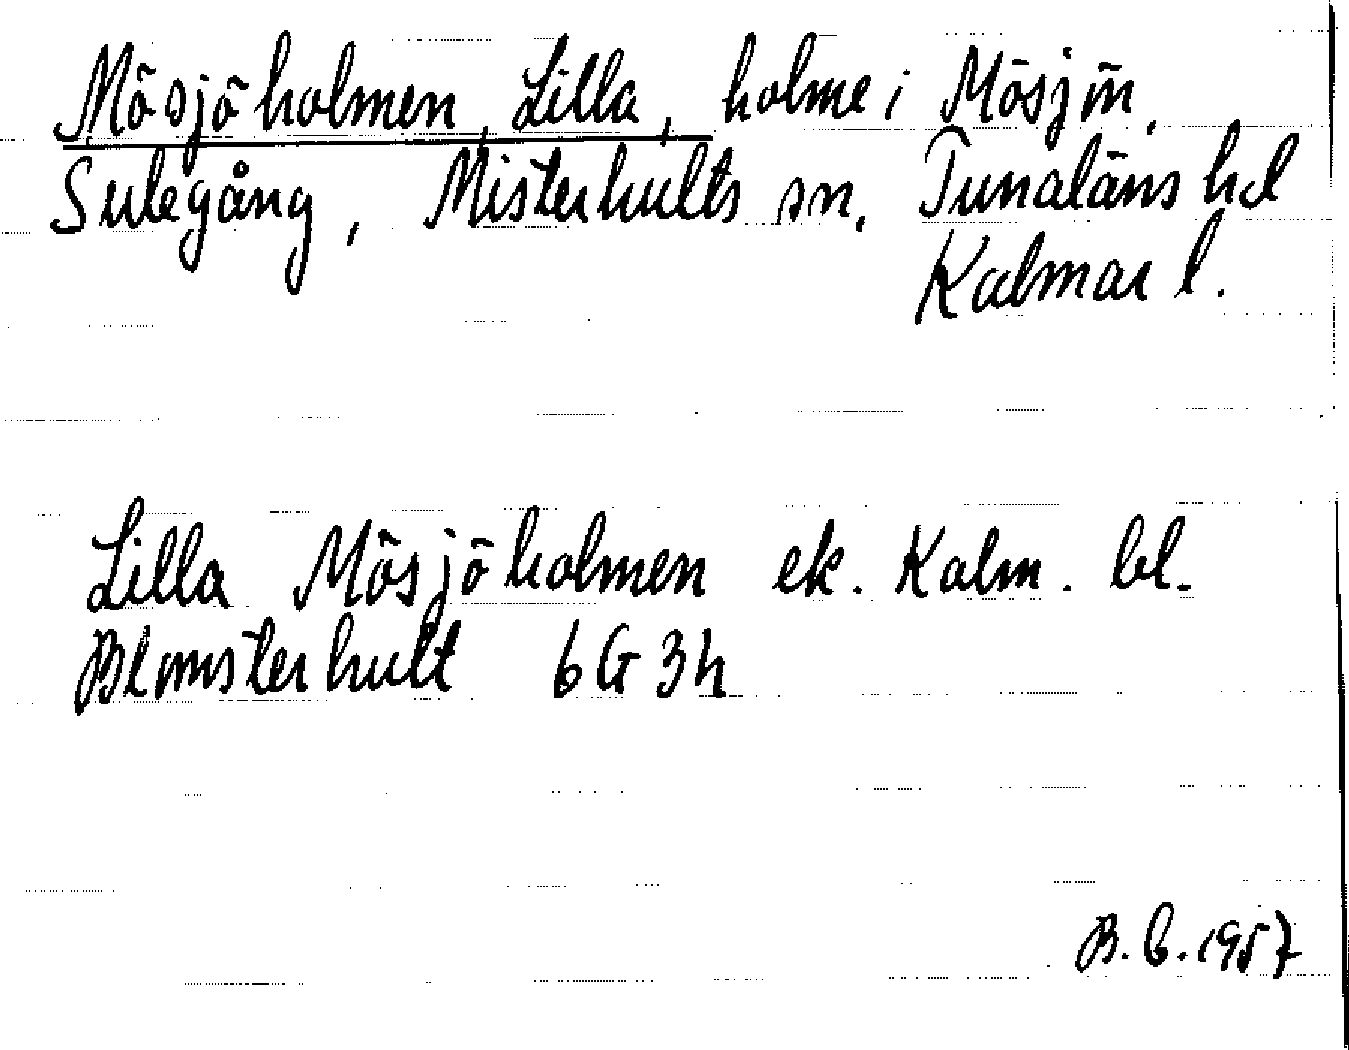 Mösjöholmen, Lilla, holme i Mösjön,
Sulegång, Misterhults sn, Tunaläns hd
Kalmar l.
Lilla Mösjöholmen ek. Kalm. bl.
Blomsterhult 6G3h
B.B.1957